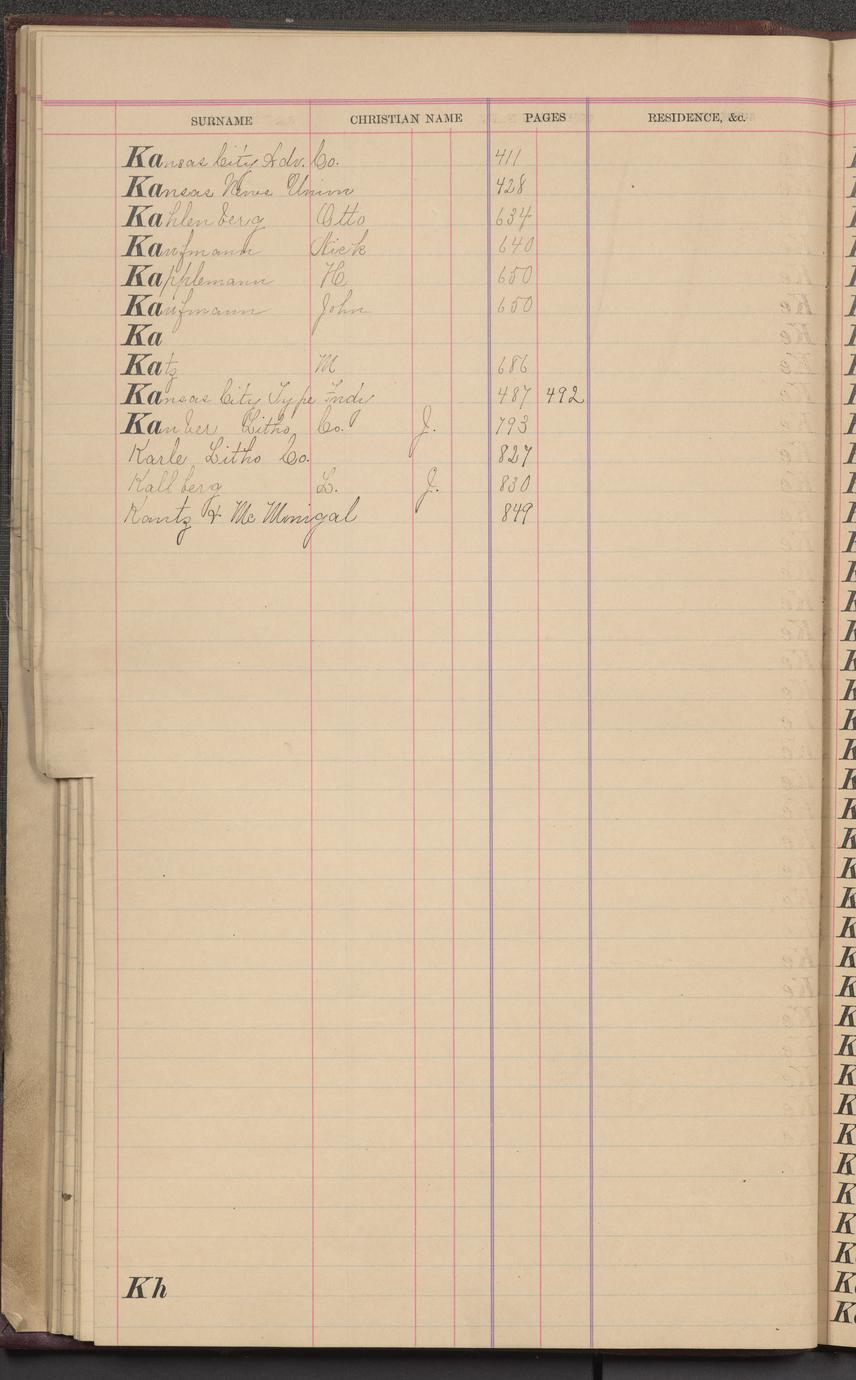 SURNAME CHRISTIAN NAME PAGES RESIDENCE, &c.
Kansas City Adv. Co. 411
Kansas News Union 428
Kahlenberg Otto 634
Kaufmann Nick 640
Kapplemann H 650
Kaufmann John 650
Ka
Katz M 686
Kansas City Type Fndy 487 492
Litho. Co. J. 793
Karle Litho Co. 827
Kallberg L. J. 830
Kantz & McMonigal 849
Kh